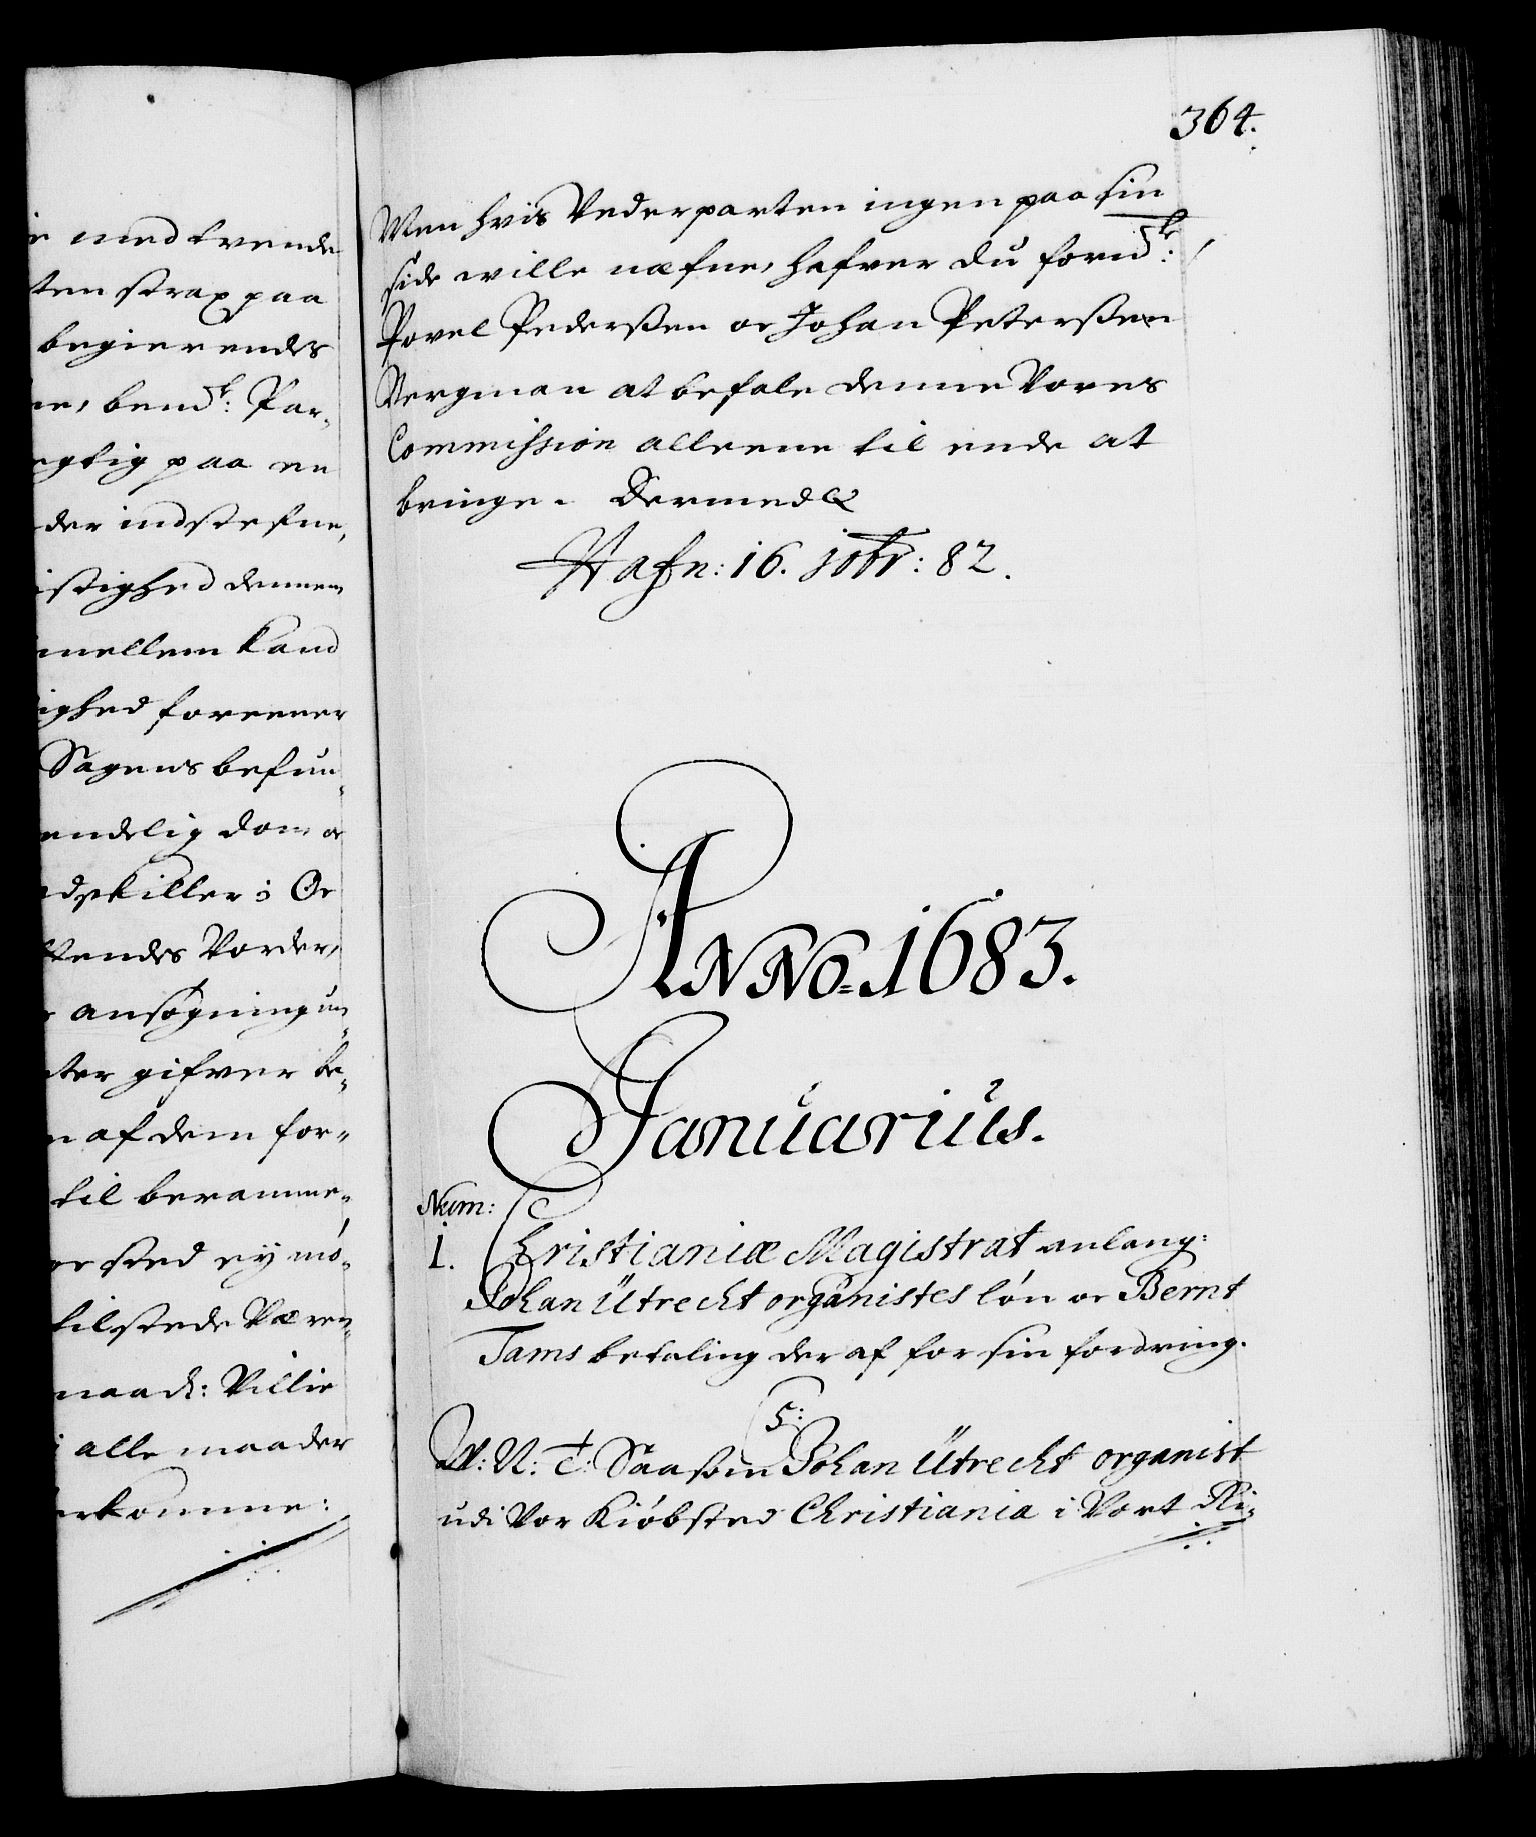 med trende
ten strax paa
begierendes
ne, bemd:te Par-
egtig paa en
der indstefne,
istighed dennem
imellem kand
ighed foreener
Sagens befun-
endelig dom oc
dskiller; Oc
tendes Vorder,
ansøgning un-
ter gifver be-
n af dem for-
til beramme-
er sted ey mø-
tilstede Væren-
naad: Villie
i alle maader
rkomme:
364.
Men hvis Vederparten ingen paa sin
side wille næfne, hafver du forn:de
Povel Pederßen oc Johan Peterßen
Bergman at befale denne Vores
Commission alleene til ende at
bringe. Dermed &
Hafn: 16. xobr: 82.
ANNO. 1683.
Januarius.
Num:
1. Christianiæ Magistrat anlang:
Johan Ütrecht organistes løn oc Bernt
Tams betaling der af for sin fordring.
C 5:
W: N: T: Saasom Johan Ütrecht organist
udi Vor Kiøbsted Christiania i Vort Ri-